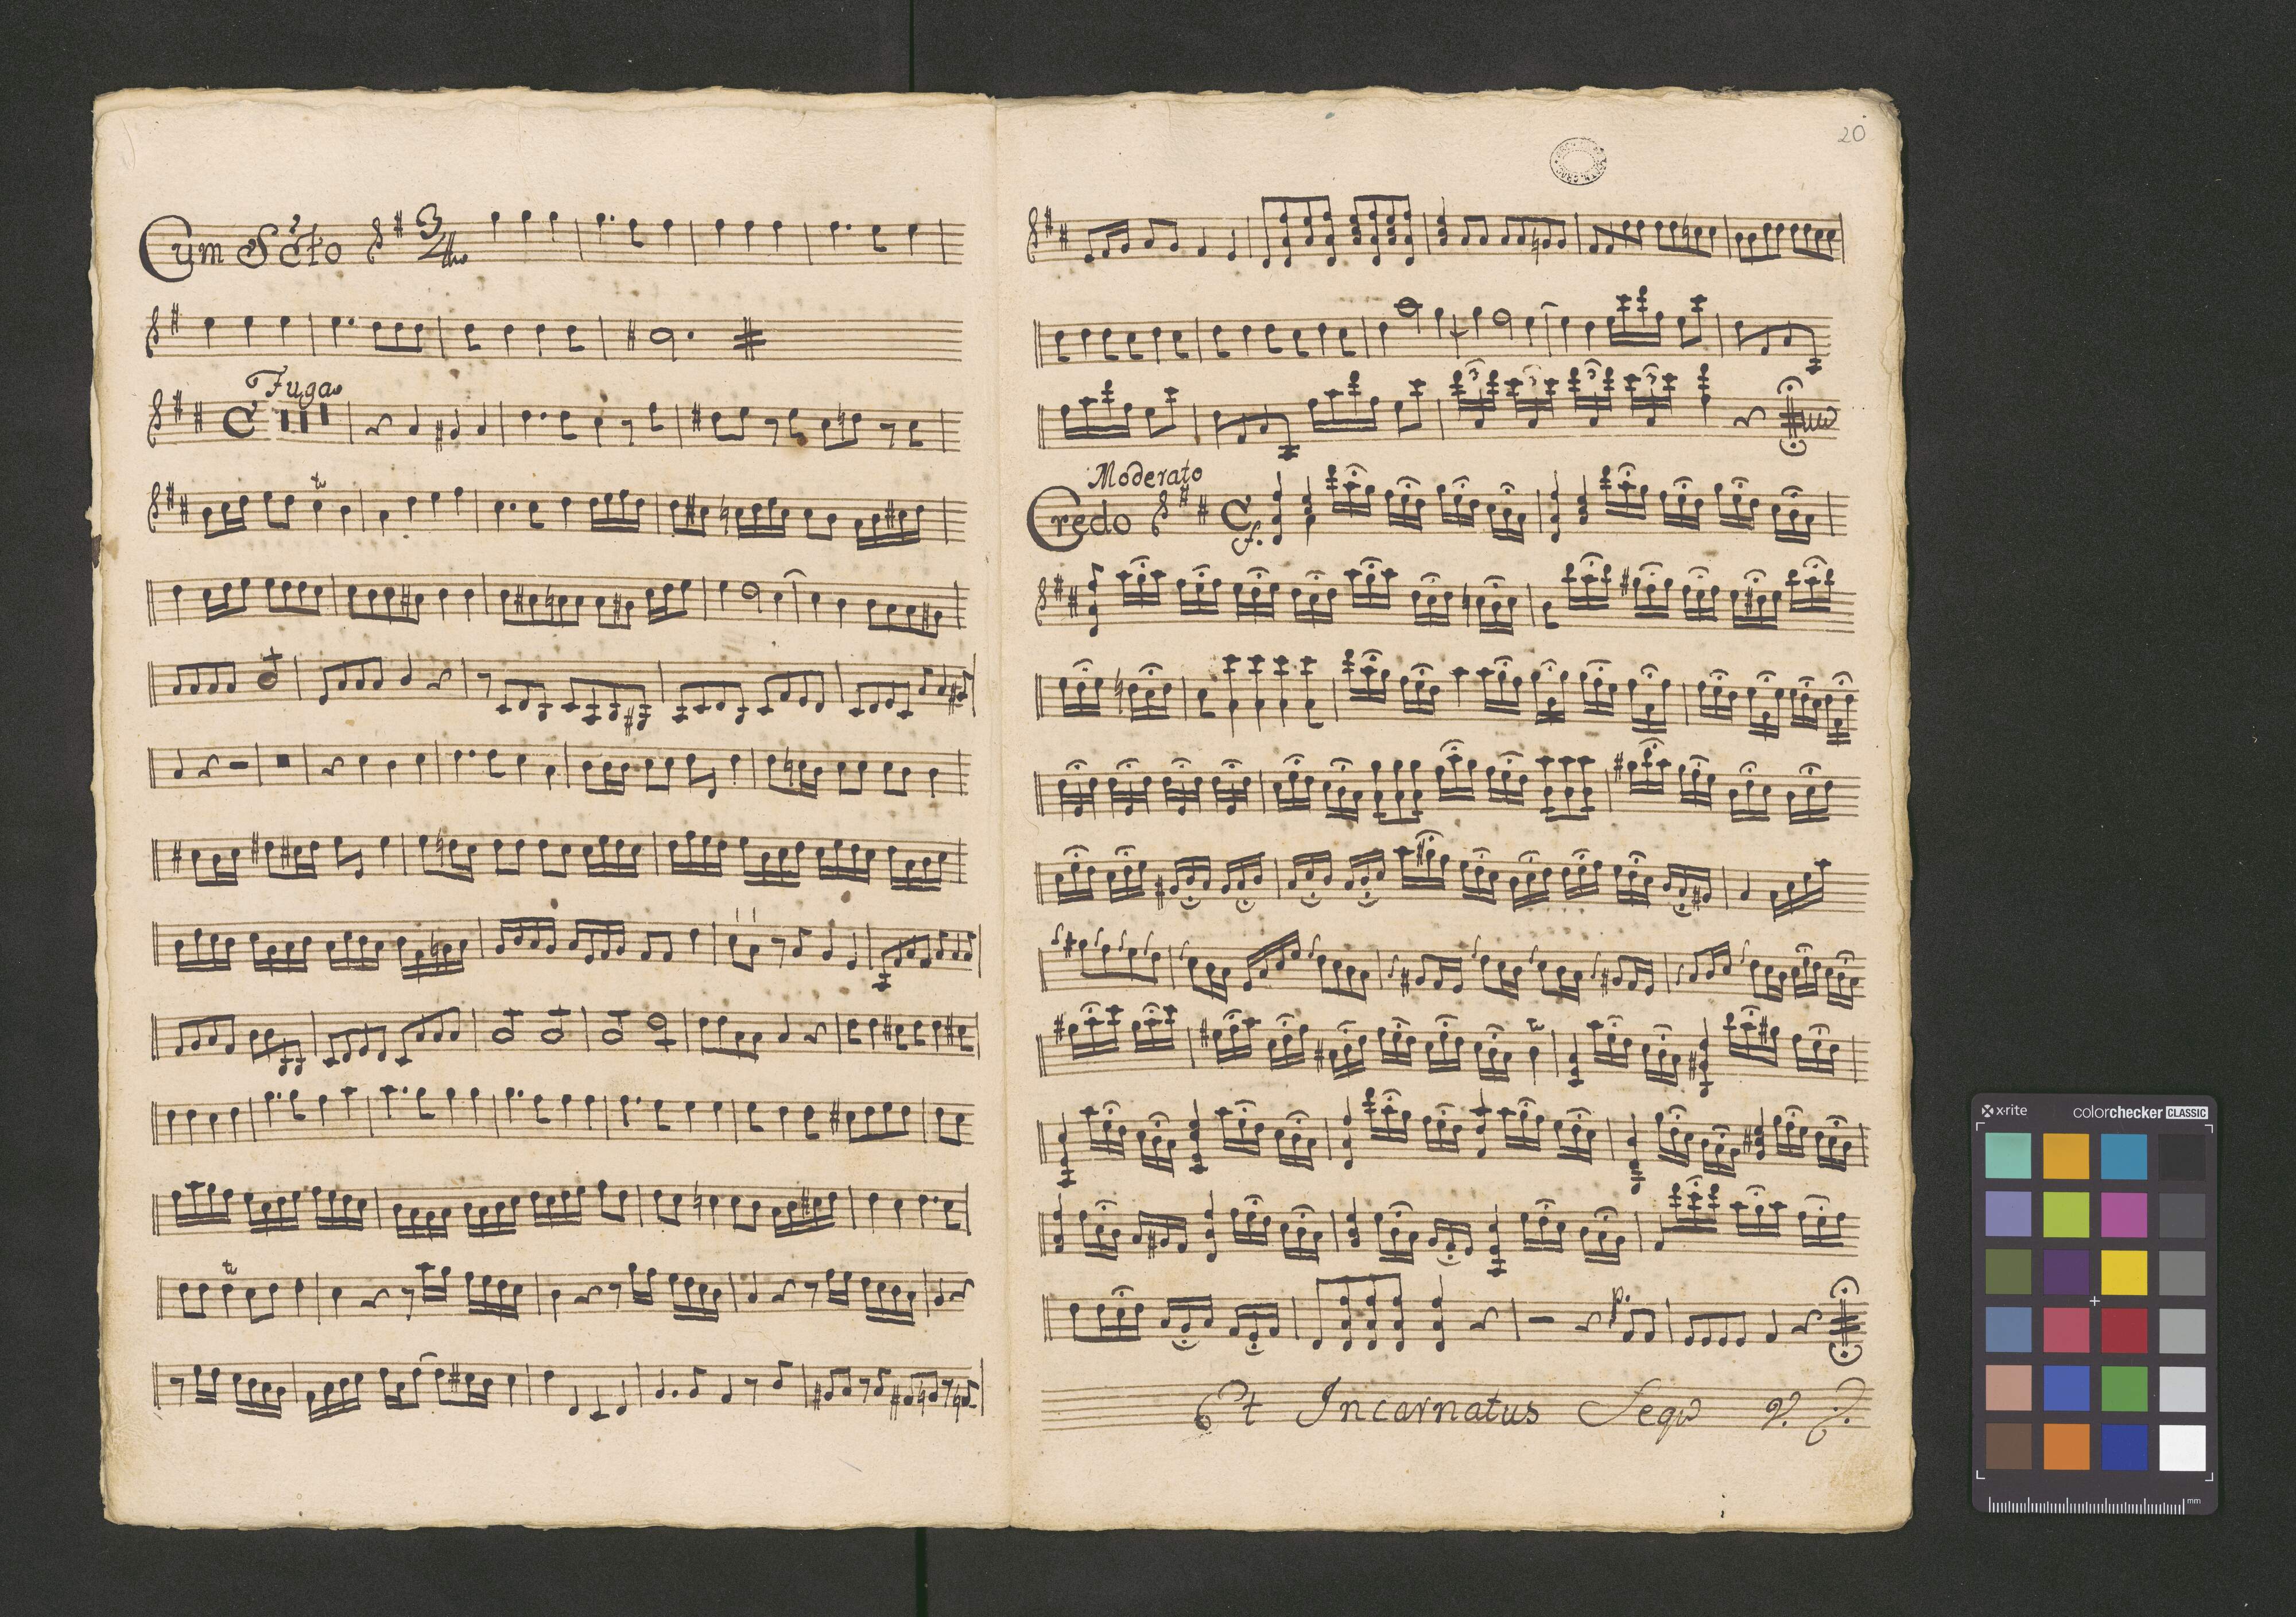 Cum Scto 3/4
Fuga
20
Moderato
Credo
f.
p.
Et Incarnatus Seqe V.
x-rite colorchecker CLASSIC
mm